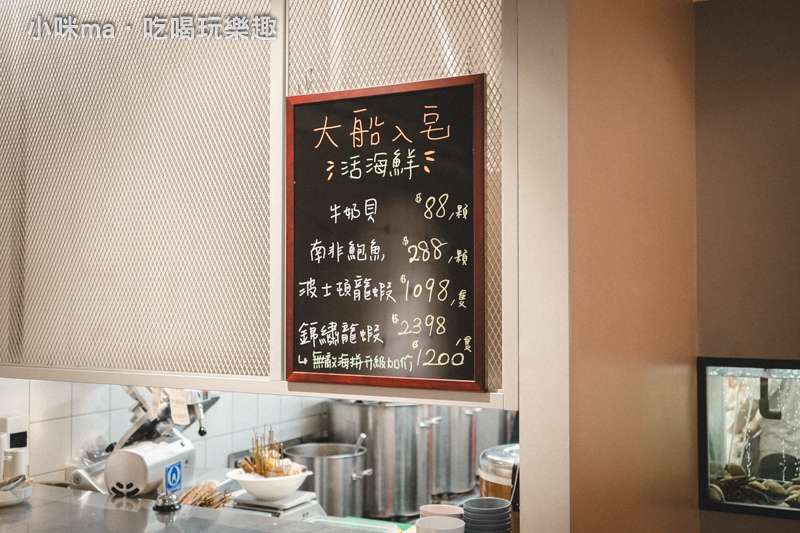 小咪ma · 吃喝玩樂趣
大船入宅
活海鮮
牛奶貝 $88/顆
南非鮑魚 $288/顆
波士頓龍蝦 $1098/隻
錦繡龍蝦 $2398/隻
↳無敵海拼升級加价 $1200